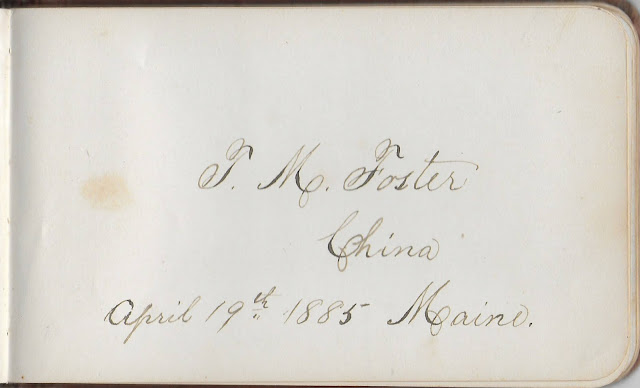 T. M. Foster
China
April 19th 1885 Maine.